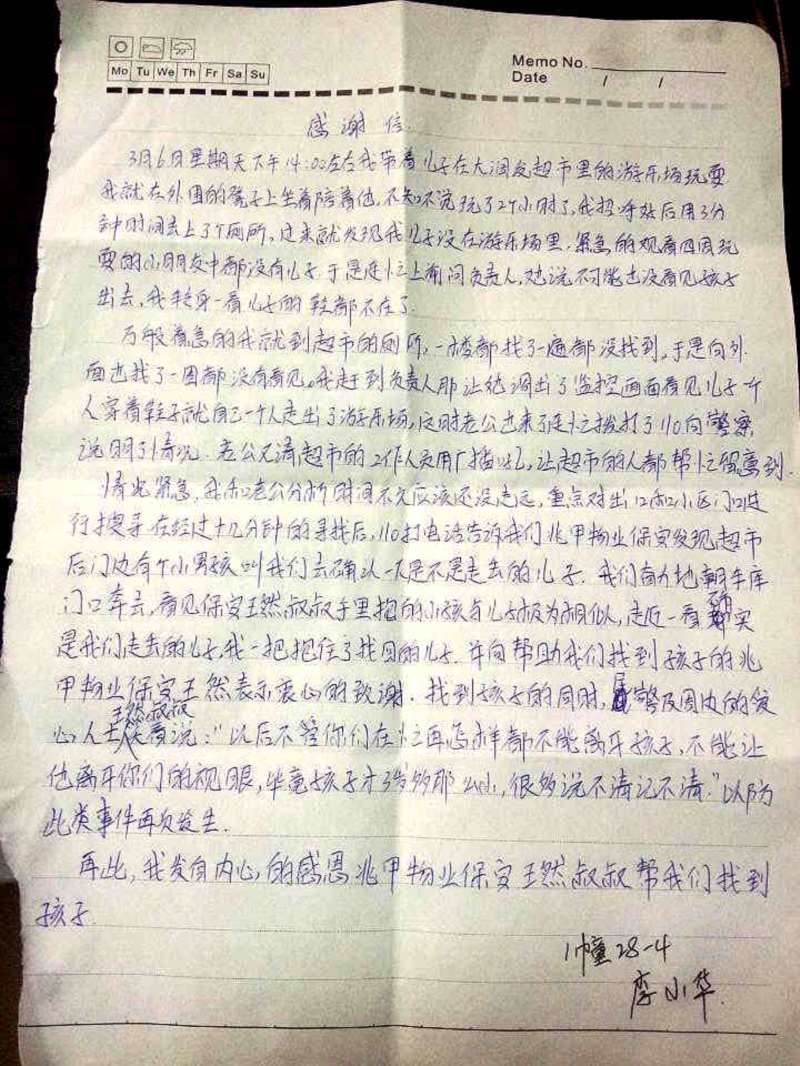 Memo No.
Mo Tu We Th Fr Sa Su
Date / /
感谢信
3月6日星期天下午14:00左右我带着儿子在大润发超市里的游乐场玩耍
我就在外围的凳子上坐着陪着他,不知不觉玩了2个小时了,我招呼好后用3分
钟时间去上了个厕所,过来就发现我儿子没在游乐场里.紧急的观看四周玩
耍的小朋友中都没有儿子于是连忙上前问负责人,她说不可能也没看见孩子
出去,我转身一看儿子的鞋都不在了.
万般着急的我就到超市的厕所,一楼都找了一遍都没找到,于是向外
面也找了一圈都没有看见,我走到负责人那让他调出了监控画面看见儿子一个
人穿着鞋子就自己一个人走出了游乐场,这时老公也来了连忙拨打了110向警察
说明了情况.老公又请超市的工作人员用广播,让超市的人都帮忙留意到.
情况紧急,我和老公分析时间不久应该还没走远,重点对出口和小区门口进
行搜寻在经过十几分钟的寻找后,110打电话告诉我们兆甲物业保安发现超市
后门边有个小男孩叫我们去确认一下是不是走失的儿子.我们奋力地朝车库
门口奔去,看见保安王然叔叔手里抱的小孩与儿子极为相似,走近一看确实
是我们走失的儿子,我一把抱住了找回的儿子.并向帮助我们找到孩子的兆
甲物业保安王然表示衷心的致谢.找到孩子的同时,民警及周边的爱
心人士王然叔叔笑着说:"以后不管你们在忙再怎样都不能离开孩子,不能让
他离开你们的视眼,毕竟孩子才3岁多那么小,很多说不清记不清."以防
此类事件再次发生.
再此,我发自内心的感恩兆甲物业保安王然叔叔帮我们找到
孩子.
1幢28-4
李小华.